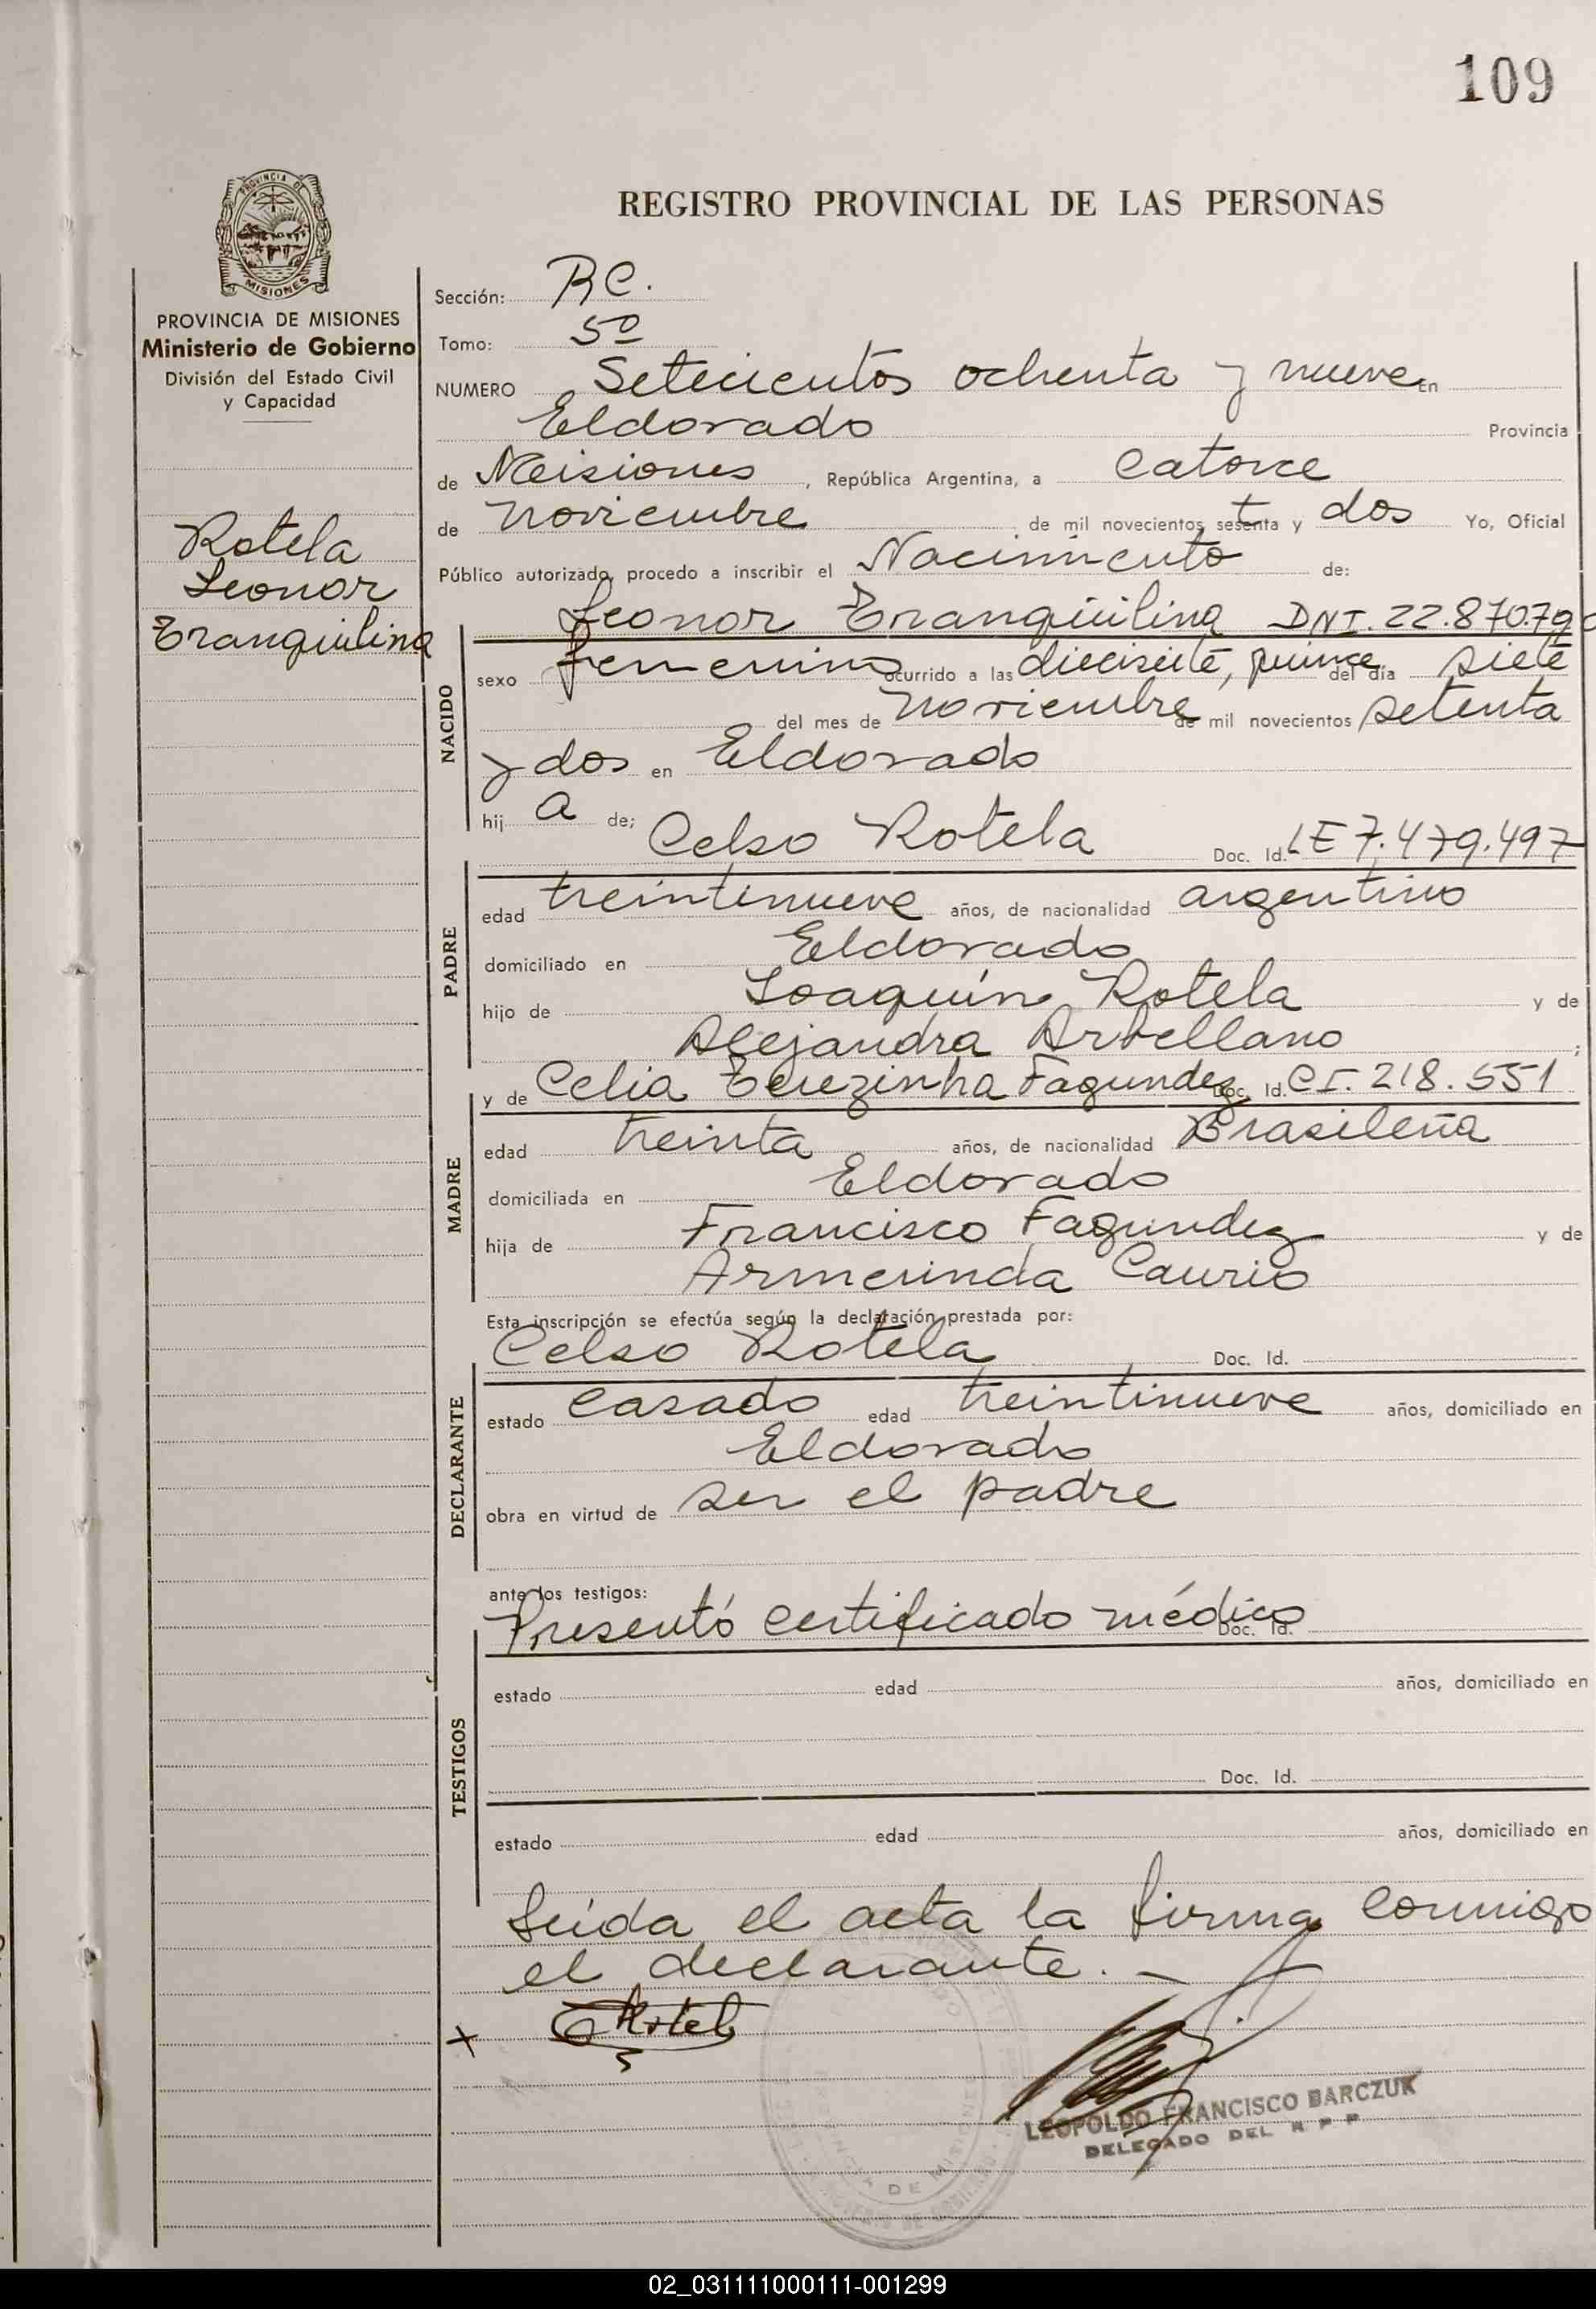 109
REGISTRO PROVINCIAL DE LAS PERSONAS
PROVINCIA DE MISIONES
PROVINCIA DE MISIONES
Ministerio de Gobierno
División del Estado Civil
y Capacidad
Rotela
Leonor
Tranquilina
Sección: RC.
Tomo: 5º
NUMERO Setecientos ochenta y nueve En
Eldorado Provincia
de Misiones, República Argentina, a catorce
de noviembre de mil novecientos setenta y dos Yo, Oficial
Público autorizado, procedo a inscribir el Nacimiento de:
Leonor Tranqüilina DNI. 22.870.79
NACIDO
sexo femenino ocurrido a las diecisiete, quince del día siete
del mes de noviembre de mil novecientos setenta
y dos en Eldorado
hij a de; Celso Rotela Doc. Id. LE 7.479.497
PADRE
edad treintinueve años, de nacionalidad argentino
domiciliado en Eldorado
hijo de Joaquín Rotela y de
Alejandra Arbellano ;
y de Celia Terezinha Fagundez Doc. Id. CI. 218.551
MADRE
edad treinta años, de nacionalidad Brasileña
domiciliada en Eldorado
hija de Francisco Fagundez y de
Armerinda Caurio
Esta inscripción se efectúa según la declaración prestada por:
Celso Rotela Doc. Id.
DECLARANTE
estado casado edad treintinueve años, domiciliado en
Eldorado
obra en virtud de ser el padre
ante los testigos:
Presentó certificado médico Doc. Id.
TESTIGOS
estado edad años, domiciliado en
Doc. Id.
estado edad años, domiciliado en
Leída el acta la firma conmigo
el declarante. —
LEOPOLDO FRANCISCO BARCZUK
DELEGADO DEL R P P
02_031111000111-001299